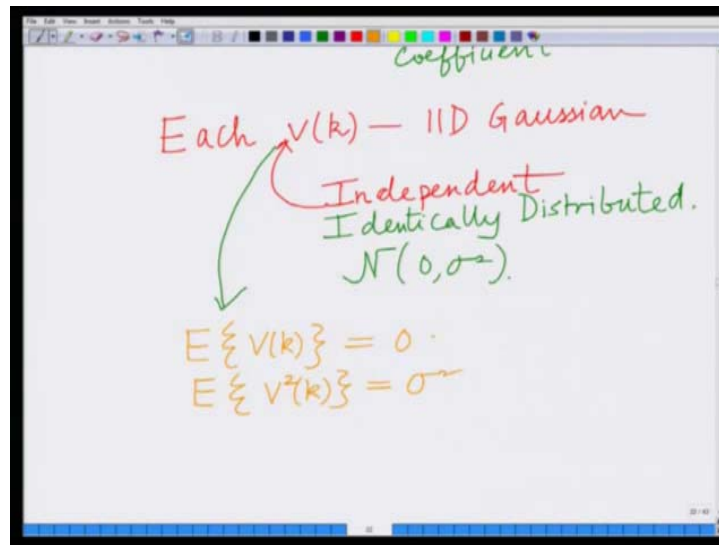 File Edit View Insert Actions Tools Help
Coefficient
Each V(k) — IID Gaussian
Independent
Identically Distributed.
N(0, σ²).
E{V(k)} = 0.
E{V²(k)} = σ²